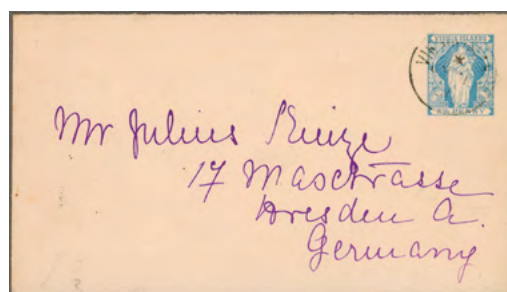 VIRGIN ISLANDS
Mr Julius
17 Mascstrasse
Dresden A.
Germany